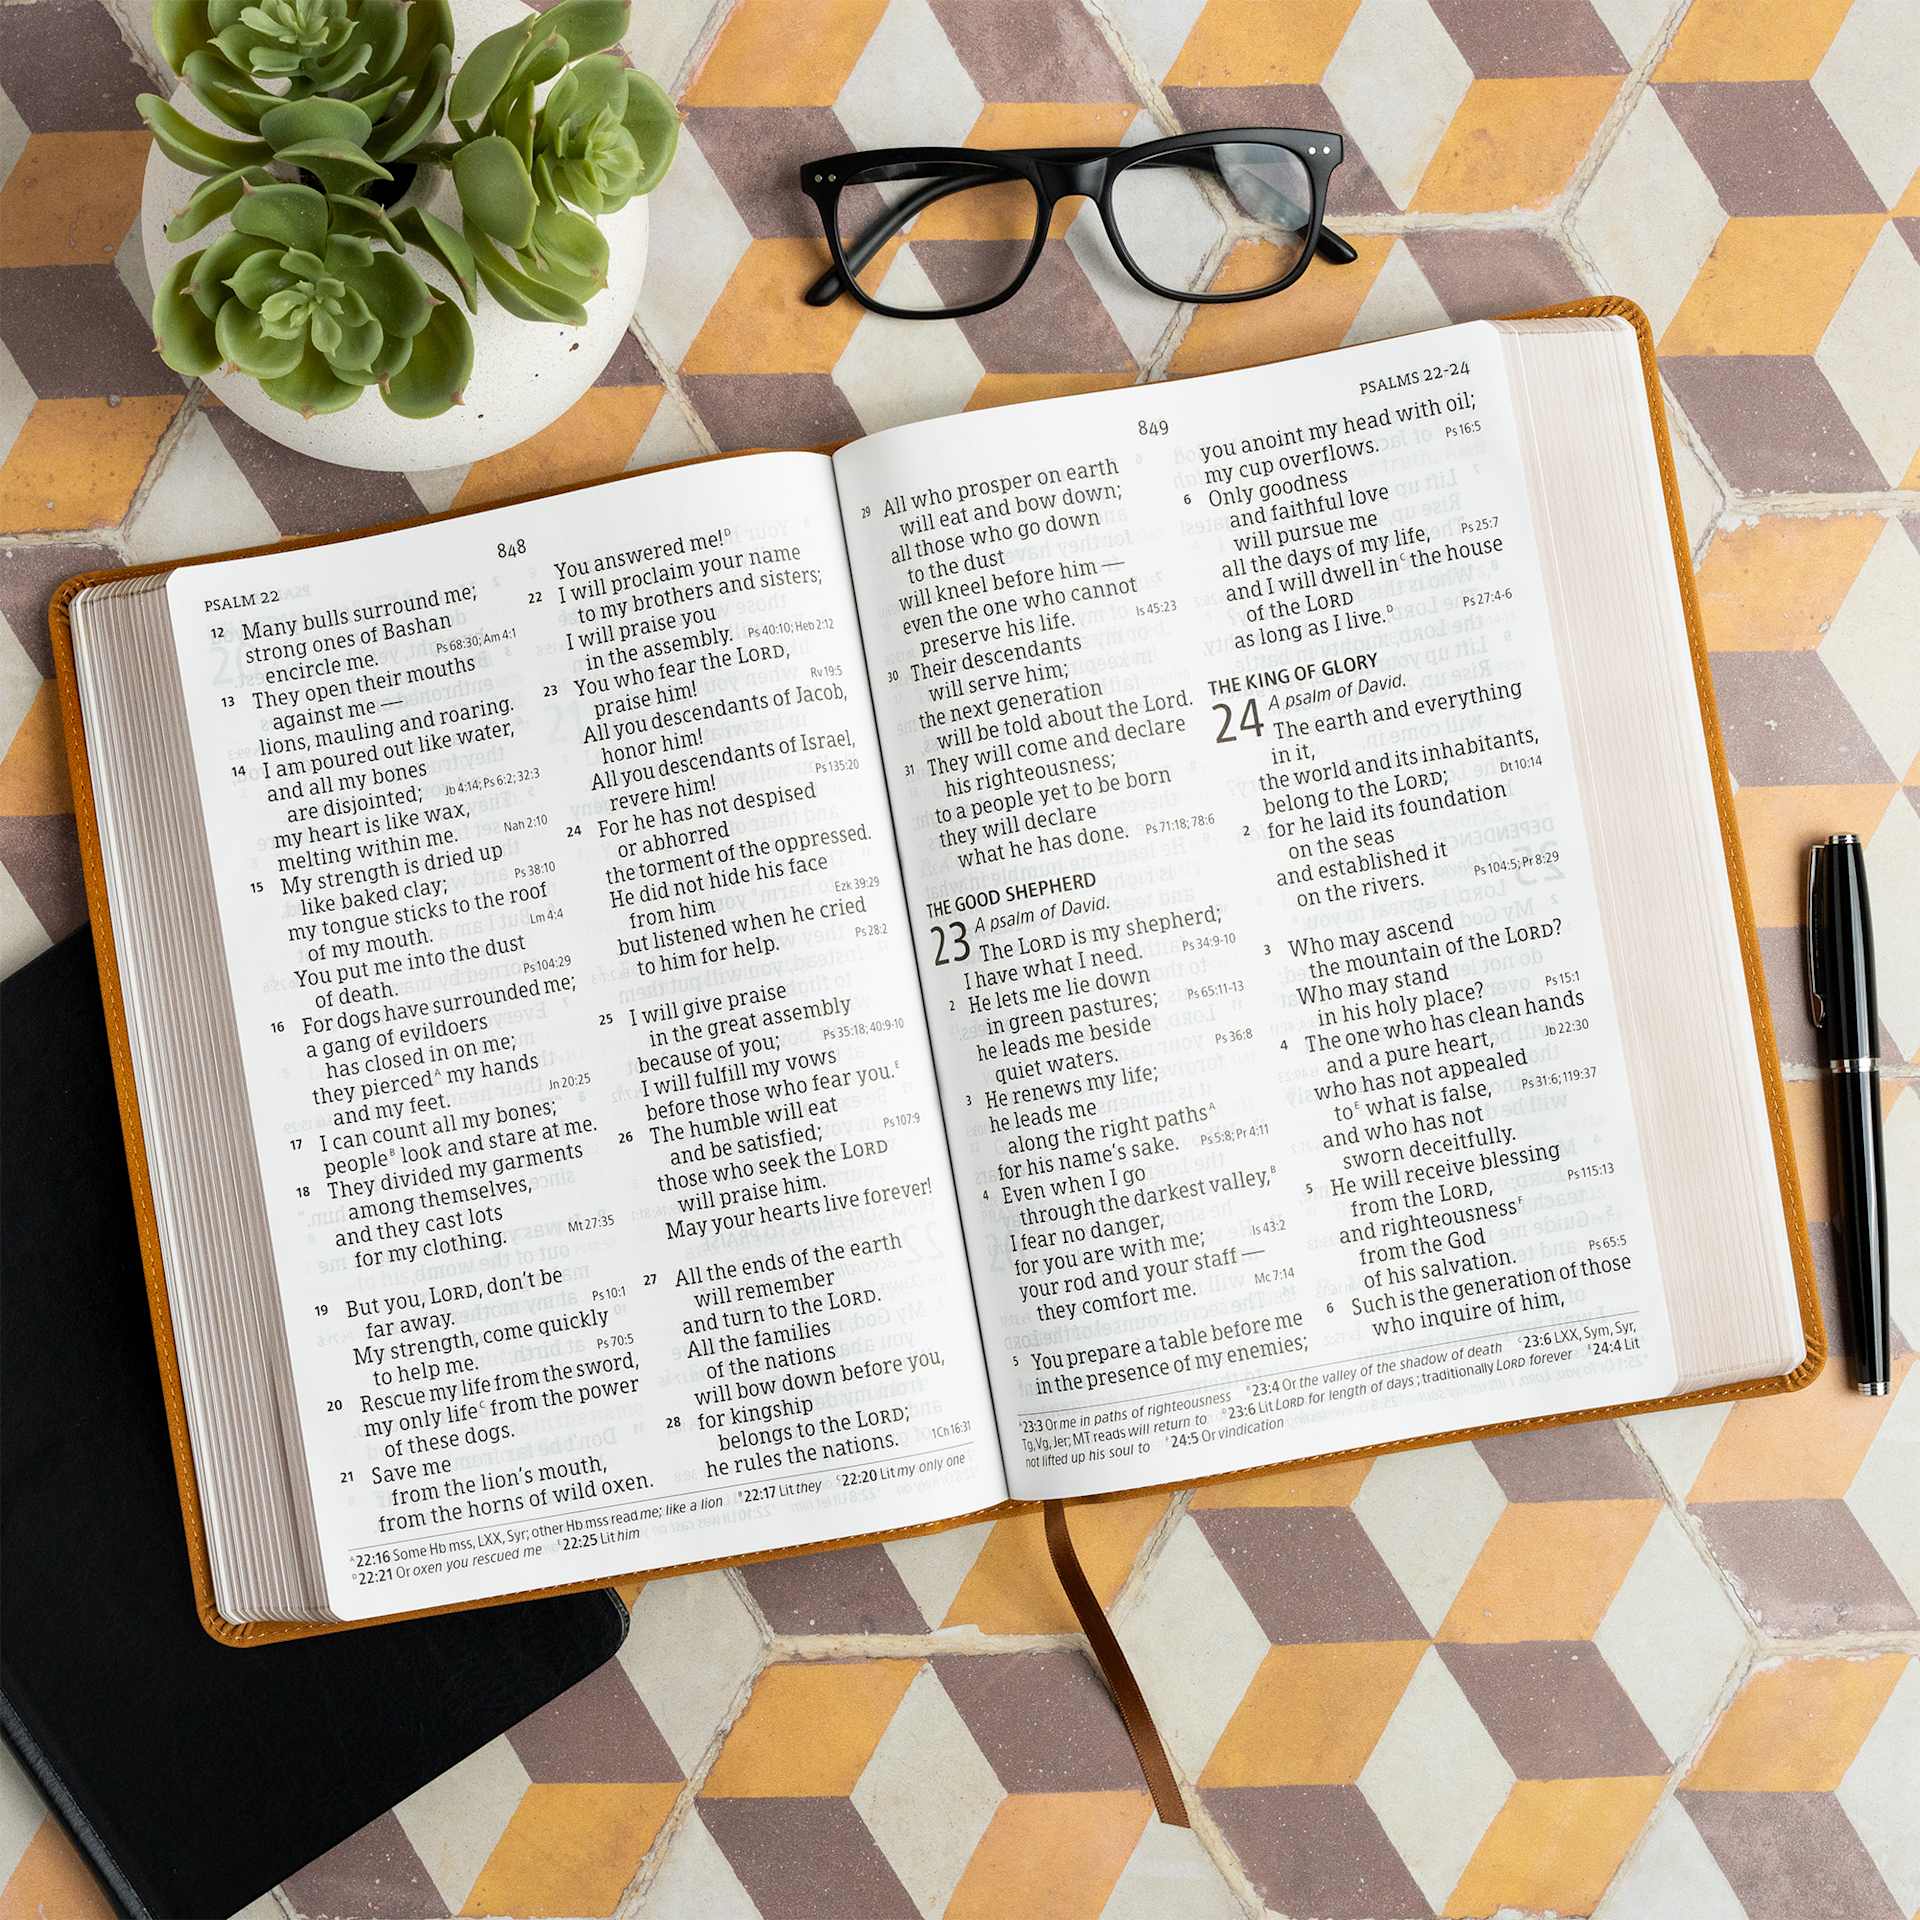 848
PSALM 22
12 Many bulls surround me;
strong ones of Bashan
encircle me. Ps 68:30; Am 4:1
13 They open their mouths
against me —
lions, mauling and roaring.
14 I am poured out like water,
and all my bones
are disjointed; Jb 4:14; Ps 6:2; 32:3
my heart is like wax,
melting within me. Nah 2:10
15 My strength is dried up
like baked clay; Ps 38:10
my tongue sticks to the roof
of my mouth. Lm 4:4
You put me into the dust
of death. Ps 104:29
16 For dogs have surrounded me;
a gang of evildoers
has closed in on me;
they pierced^A my hands
and my feet. Jn 20:25
17 I can count all my bones;
people^B look and stare at me.
18 They divided my garments
among themselves,
and they cast lots
for my clothing. Mt 27:35
19 But you, LORD, don't be
far away. Ps 10:1
My strength, come quickly
to help me. Ps 70:5
20 Rescue my life from the sword,
my only life^C from the power
of these dogs.
21 Save me
from the lion's mouth,
from the horns of wild oxen.
You answered me!^D
22 I will proclaim your name
to my brothers and sisters;
I will praise you
in the assembly. Ps 40:10; Heb 2:12
23 You who fear the LORD,
praise him! Rv 19:5
All you descendants of Jacob,
honor him!
All you descendants of Israel,
revere him! Ps 135:20
24 For he has not despised
or abhorred
the torment of the oppressed.
He did not hide his face
from him Ezk 39:29
but listened when he cried
to him for help. Ps 28:2
25 I will give praise
in the great assembly
because of you; Ps 35:18; 40:9-10
I will fulfill my vows
before those who fear you.^E
26 The humble will eat
and be satisfied; Ps 107:9
those who seek the LORD
will praise him.
May your hearts live forever!
27 All the ends of the earth
will remember
and turn to the LORD.
All the families
of the nations
will bow down before you,
28 for kingship
belongs to the LORD;
he rules the nations. 1Ch 16:31
^A 22:16 Some Hb mss, LXX, Syr; other Hb mss read me; like a lion ^B 22:17 Lit they ^C 22:20 Lit my only one
^D 22:21 Or oxen you rescued me ^E 22:25 Lit him
849
PSALMS 22-24
29 All who prosper on earth
will eat and bow down;
all those who go down
to the dust
will kneel before him —
even the one who cannot
preserve his life. Is 45:23
30 Their descendants
will serve him;
the next generation
will be told about the Lord.
31 They will come and declare
his righteousness;
to a people yet to be born
they will declare
what he has done. Ps 71:18; 78:6
THE GOOD SHEPHERD
23 A psalm of David.
The LORD is my shepherd;
I have what I need. Ps 34:9-10
2 He lets me lie down
in green pastures; Ps 65:11-13
he leads me beside
quiet waters. Ps 36:8
3 He renews my life;
he leads me
along the right paths^A
for his name's sake. Ps 5:8; Pr 4:11
4 Even when I go
through the darkest valley,^B
I fear no danger,
for you are with me; Is 43:2
your rod and your staff —
they comfort me. Mc 7:14
5 You prepare a table before me
in the presence of my enemies;
you anoint my head with oil;
my cup overflows. Ps 16:5
6 Only goodness
and faithful love
will pursue me
all the days of my life, Ps 25:7
and I will dwell in^C the house
of the LORD
as long as I live.^D Ps 27:4-6
THE KING OF GLORY
24 A psalm of David.
The earth and everything
in it,
the world and its inhabitants,
belong to the LORD; Dt 10:14
2 for he laid its foundation
on the seas
and established it
on the rivers. Ps 104:5; Pr 8:29
3 Who may ascend
the mountain of the LORD?
Who may stand
in his holy place? Ps 15:1
4 The one who has clean hands
and a pure heart, Jb 22:30
who has not appealed
to^E what is false, Ps 31:6; 119:37
and who has not
sworn deceitfully.
5 He will receive blessing
from the LORD, Ps 115:13
and righteousness^F
from the God
of his salvation. Ps 65:5
6 Such is the generation of those
who inquire of him,
^A 23:3 Or me in paths of righteousness ^B 23:4 Or the valley of the shadow of death ^C 23:6 LXX, Sym, Syr,
Tg, Vg, Jer; MT reads will return to ^D 23:6 Lit LORD for length of days; traditionally LORD forever ^E 24:4 Lit
not lifted up his soul to ^F 24:5 Or vindication